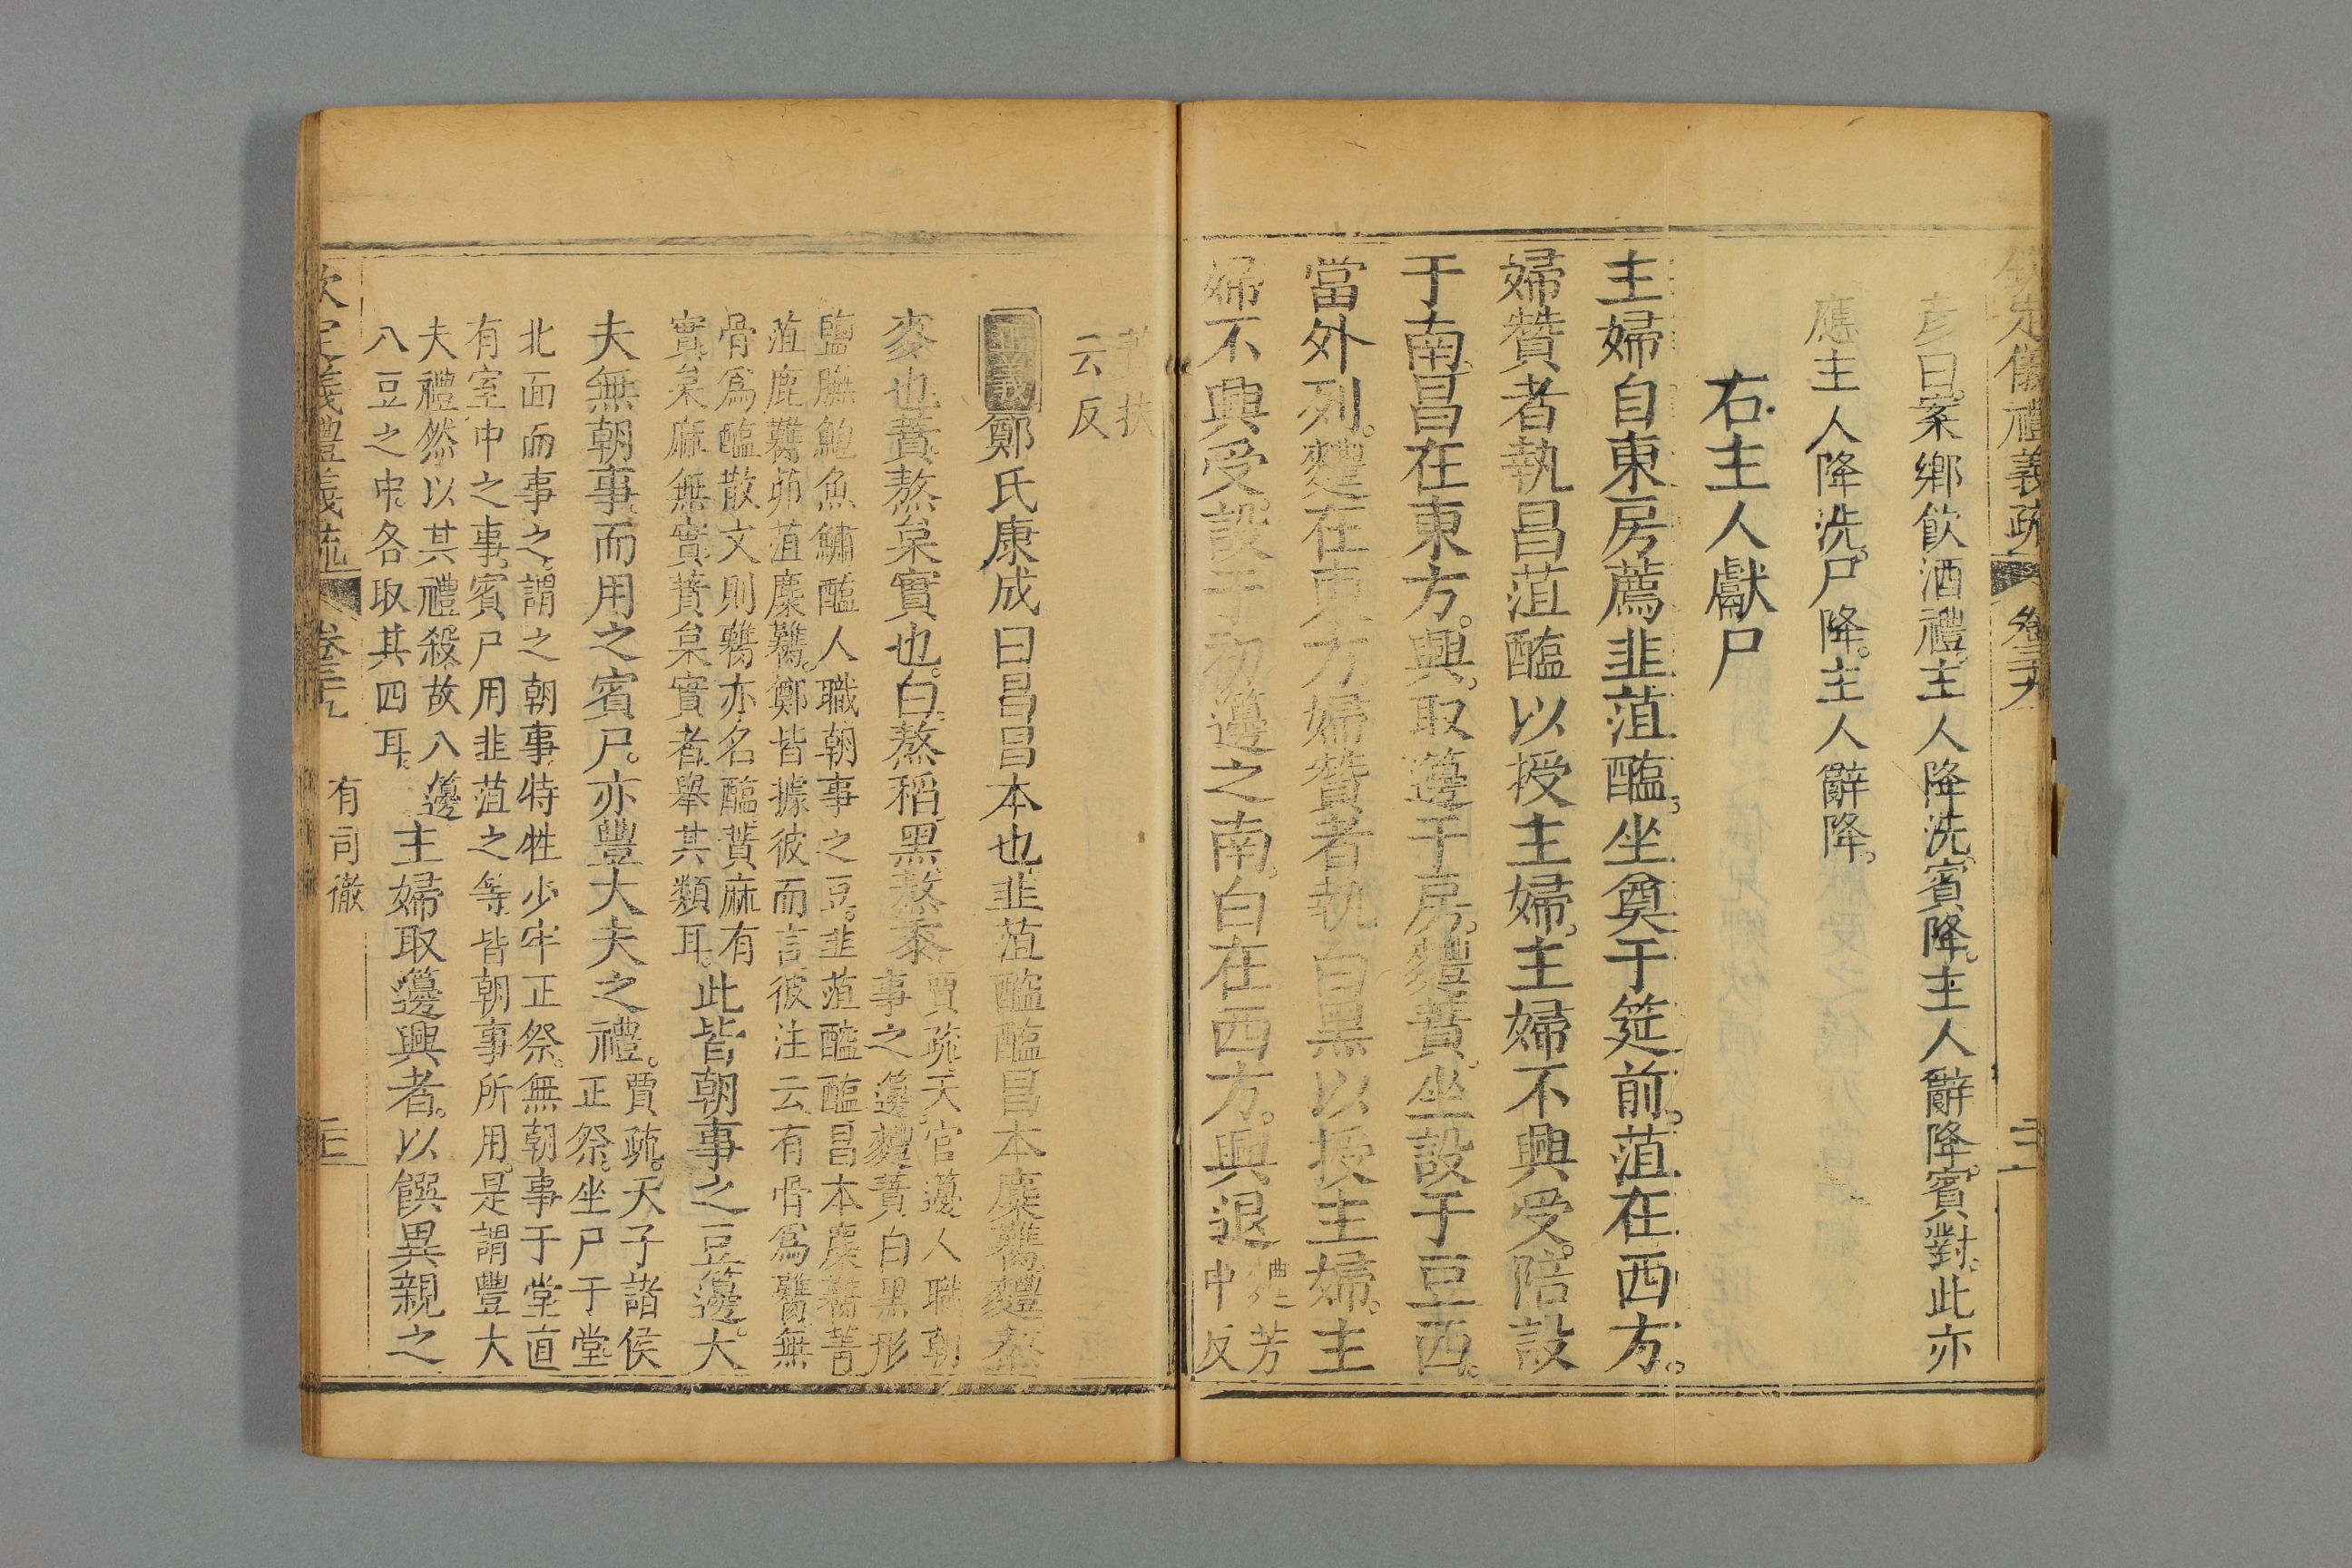 欽定儀禮義疏 卷三十九 三十一
彥曰案鄉飲酒禮主人降洗賓降主人辭降賓對此亦
應主人降洗尸降主人辭降
右主人獻尸
主婦自東房薦韭菹醢坐奠于筵前菹在西方
婦贊者執昌菹醢以授主婦主婦不興受陪設
于南昌在東方興取籩于房麷蕡坐設于豆西
當外列麷在東方婦贊者執白黑以授主婦主
婦不興受設于初籩之南白在西方興退
芳
中反
扶
云反
正義鄭氏康成曰昌昌本也韭菹醓醢昌本麋臡麷熬
麥也蕡熬枲實也白熬稻黑熬黍
賈疏天官籩人職朝
事之籩麷蕡白黑形
鹽膴鮑魚鱐醢人職朝事之豆韭菹醓醢昌本麋臡菁
菹鹿臡茆菹麋臡鄭皆據彼而言彼注云有骨爲臡無
骨爲醢散文則臡亦名醢蕡麻有
實枲麻無實蕡枲實者舉其類耳
此皆朝事之豆籩大
夫無朝事而用之賓尸亦豐大夫之禮
賈疏天子諸侯
正祭坐尸于堂
北面而事之謂之朝事特牲少牢正祭無朝事于堂直
有室中之事賓尸用韭菹之等皆朝事所用是謂豐大
夫禮然以其禮殺故八籩
八豆之中各取其四耳
主婦取籩興者以饌異親之
欽定義禮義疏 卷三十九 有司徹 三十二